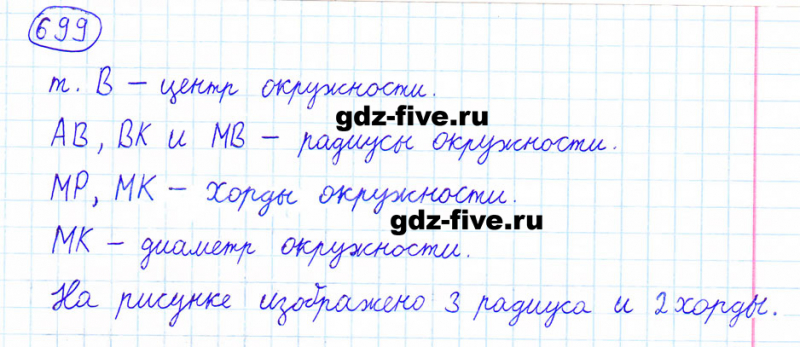 699
т. В – центр окружности.
gdz-five.ru
АВ, ВК и МВ – радиусы окружности.
МР, МК – хорды окружности.
gdz-five.ru
МК – диаметр окружности.
На рисунке изображено 3 радиуса и 2 хорды.